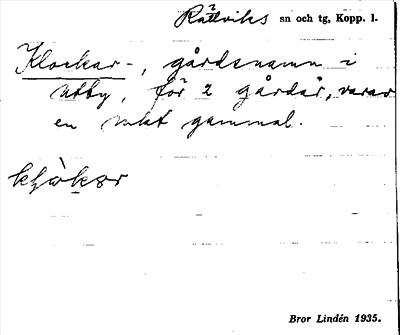 Rättviks sn och tg, Kopp. l.
Klockar-, gårdsnamn i
Utby, för 2 gårdar, varav
en mkt gammal.
Bror Lindén 1935.